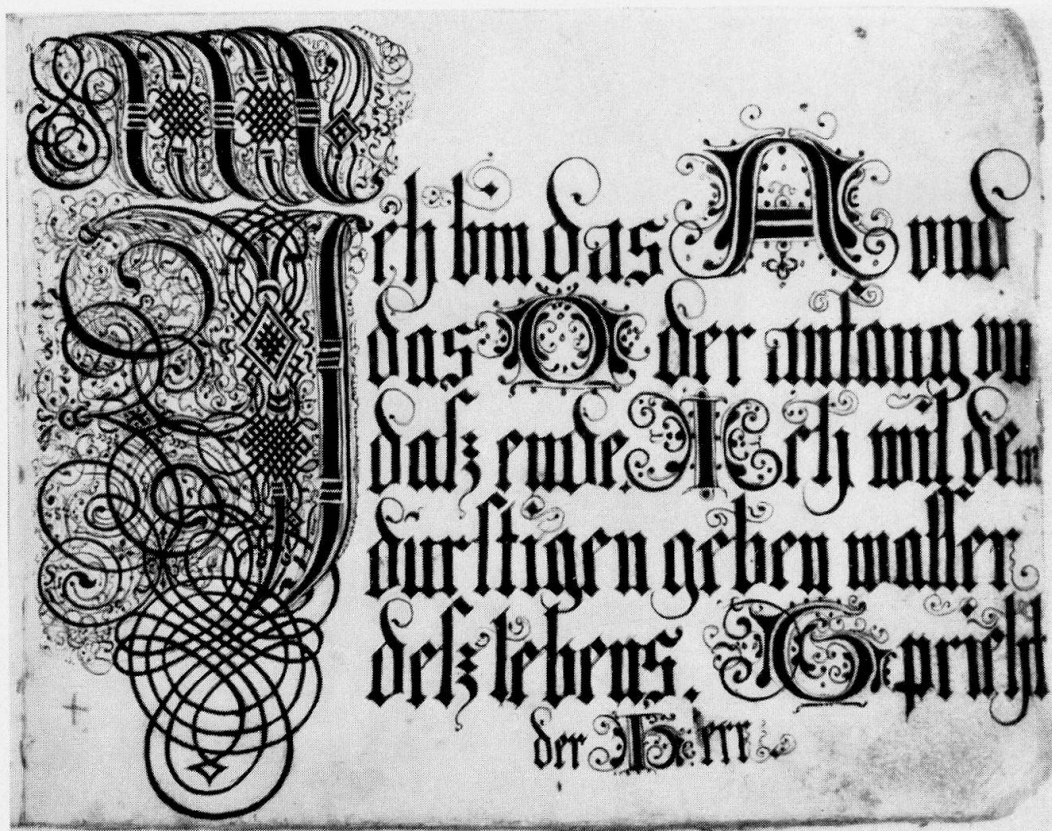 Ich bin das A und
das O der anfang vn
dasz ende. Ich wil dem
durstigen geben wasser
desz lebens. Spricht
der Herr